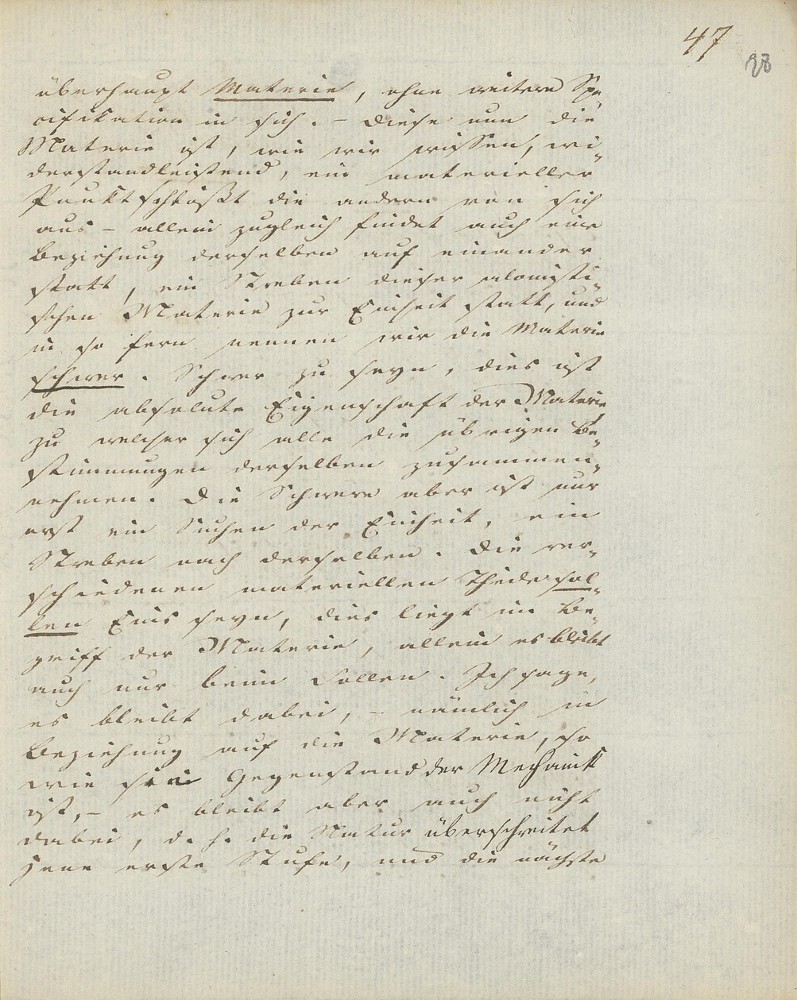 47
28
überhaupt Materie, ohne weitere Spe-
cifikation in sich. – Diese nun die
Materie ist, wie wir wissen, wi-
derstandleistend, ein materieller
Punkt schlüßt die andern von sich
aus – allein zugleich findet auch eine
Beziehung derselben auf einander
statt, ein Streben dieser atomisti-
schen Materie zur Einheit statt, und
in so fern nennen wir die Materie
schwer. Schwer zu seyn, dies ist
die absolute Eigenschaft der Materie
zu welcher sich alle die übrigen Be-
stimmungen derselben zusammen-
nehmen. Die Schwere aber ist nur
erst ein Suchen der Einheit, ein
Streben nach derselben. Die ver-
schiedenen materiellen Theile sol-
len Eins seyn, dies liegt im Be-
griff der Materie, allein es bleibt
auch nur beim Sollen. Ich sage,
es bleibt dabei, – nämlich in
Beziehung auf die Materie, so
wie sie Gegenstand der Mechanik
ist, – es bleibt aber auch nicht
dabei, d. h. die Natur überschreitet
jene erste Stufe, und die nächste